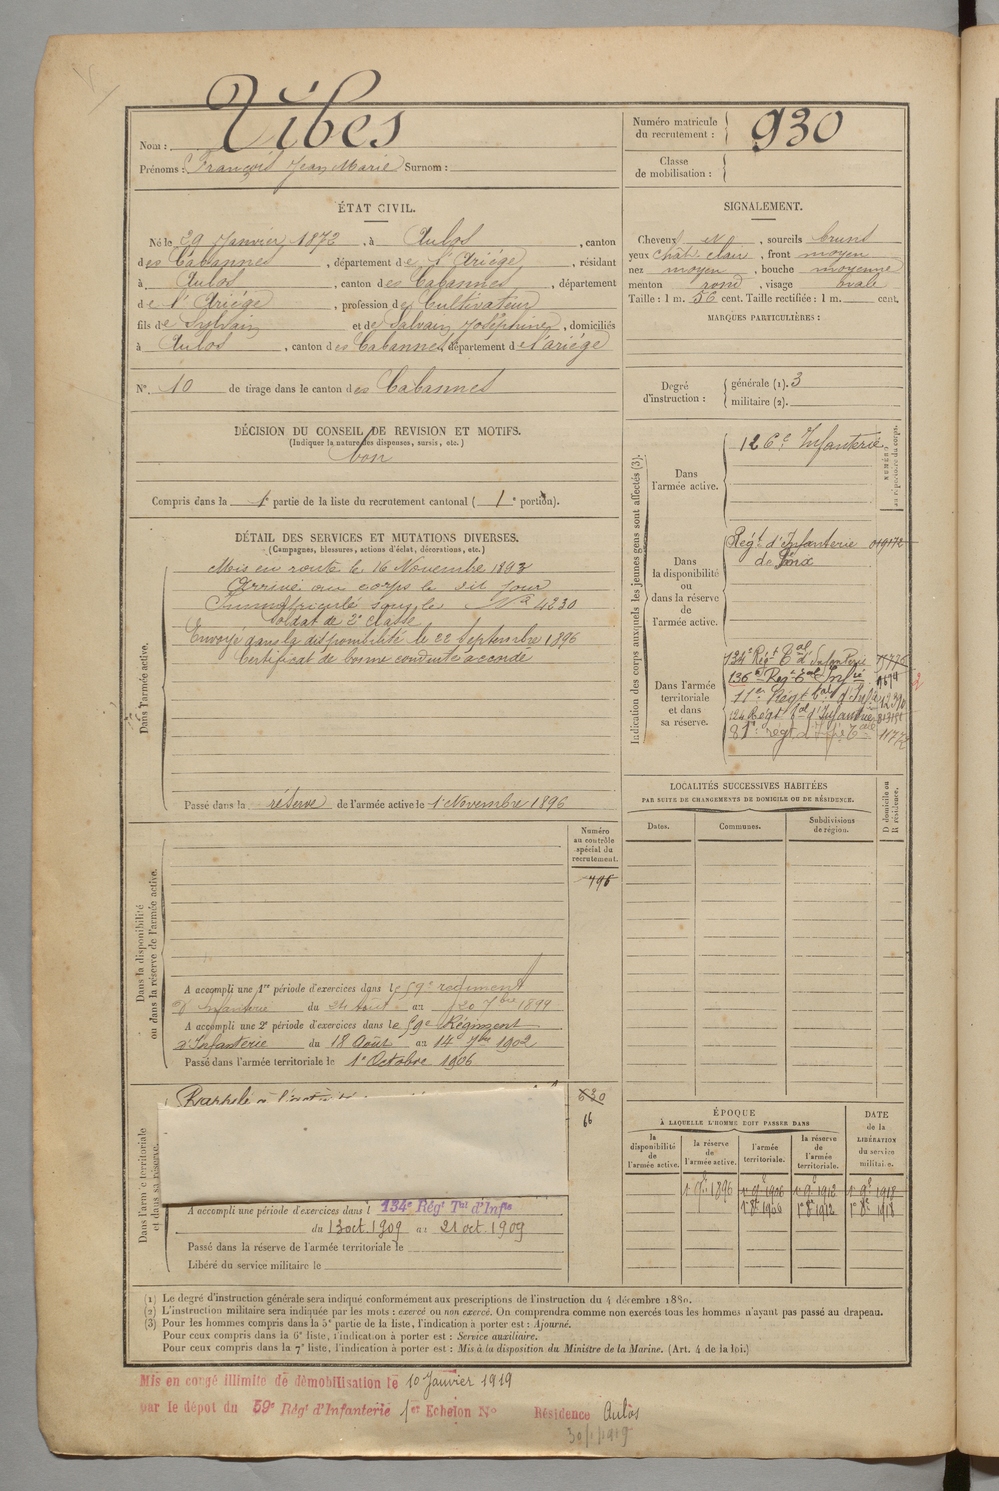 Nom : Vibes
Prénoms : François Jean Marie Surnom :
Numéro matricule du recrutement : 930
Classe de mobilisation :
ÉTAT CIVIL.
Né le 29 Janvier 1872, à Aulos, canton
des Cabannes, département de l'Ariége, résidant
à Aulos, canton des Cabannes, département
de l'Ariége, profession de Cultivateur
fils de Sylvain et de Salvain Joséphine, domiciliés
à Aulos, canton des Cabannes, département de l'ariége
N° 10 de tirage dans le canton des Cabannes
SIGNALEMENT.
Cheveux N, sourcils bruns
yeux chât. clair, front moyen
nez moyen, bouche moyenne
menton rond, visage ovale
Taille : 1 m. 56 cent. Taille rectifiée : 1 m. cent.
MARQUES PARTICULIÈRES :
Degré d'instruction : générale (1). 3
militaire (2).
DÉCISION DU CONSEIL DE REVISION ET MOTIFS.
(Indiquer la nature des dispenses, sursis, etc.)
bon
Compris dans la 1e partie de la liste du recrutement cantonal ( 1e portion).
DÉTAIL DES SERVICES ET MUTATIONS DIVERSES.
(Campagnes, blessures, actions d'éclat, décorations, etc.)
Dans l'armée active.
Mis en route le 16 Novembre 1893
Arrivé au corps le dit jour
Immatriculé sous le N° 4230
Soldat de 2e classe
Envoyé dans la disponibilité le 22 Septembre 1896
Certificat de bonne conduite accordé
Passé dans la réserve de l'armée active le 1 Novembre 1896
Indication des corps auxquels les jeunes gens sont affectés (3).
NUMÉRO au répertoire du corps.
Dans l'armée active.
126e Infanterie
Dans la disponibilité ou dans la réserve de l'armée active.
Régt d'infanterie
de Foix
Dans l'armée territoriale et dans sa réserve.
134e Régt Tal d'Infanterie
136e Régt Tal Infie
11er Régt Tal d'Infie
124 Régt Tal d'Infanterie
LOCALITÉS SUCCESSIVES HABITÉES
PAR SUITE DE CHANGEMENTS DE DOMICILE OU DE RÉSIDENCE.
D domicile ou R résidence.
Dates. Communes. Subdivisions de région.
Numéro au contrôle spécial du recrutement.
796
Dans la disponibilité ou dans la réserve de l'armée active.
A accompli une 1re période d'exercices dans le 59e régiment
d'Infanterie du 24 Août au 20 7bre 1899
A accompli une 2e période d'exercices dans le 59e Régiment
d'Infanterie du 18 Août au 14 7bre 1902
Passé dans l'armée territoriale le 1e Octobre 1906
Dans l'armée territoriale et dans sa réserve.
Rappelé à l'activité
630
66
A accompli une période d'exercices dans l 134e Régt Tal d'Infie
du 13 oct. 1909 au 21 oct. 1909
Passé dans la réserve de l'armée territoriale le
Libéré du service militaire le
ÉPOQUE
À LAQUELLE L'HOMME DOIT PASSER DANS
la disponibilité de l'armée active.
la réserve de l'armée active.
l'armée territoriale.
la réserve de l'armée territoriale.
DATE de la LIBÉRATION du service militaire.
1e 9e 1896 1e 9e 1906 1e 9e 1912 1e 9e 1918
1e 8e 1906 1e 8e 1912 1e 8e 1918
(1) Le degré d'instruction générale sera indiqué conformément aux prescriptions de l'instruction du 4 décembre 1889.
(2) L'instruction militaire sera indiquée par les mots : exercé ou non exercé. On comprendra comme non exercés tous les hommes n'ayant pas passé au drapeau.
(3) Pour les hommes compris dans la 5e partie de la liste, l'indication à porter est : Ajourné.
Pour ceux compris dans la 6e liste, l'indication à porter est : Service auxiliaire.
Pour ceux compris dans la 7e liste, l'indication à porter est : Mis à la disposition du Ministre de la Marine. (Art. 4 de la loi.)
Mis en congé illimité de démobilisation le 10 Janvier 1919
par le dépôt du 59e Régt d'Infanterie 1er Echelon N° Résidence Aulos
30/1/1919